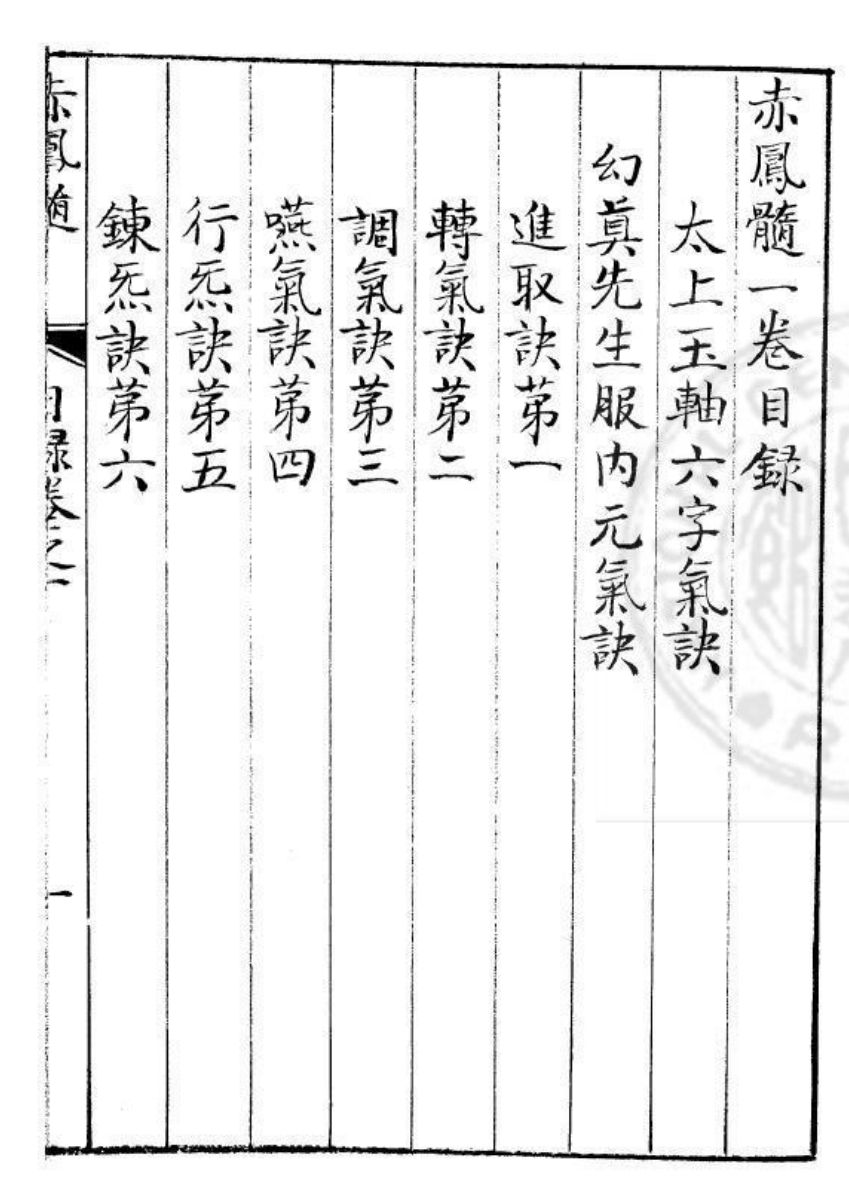 赤鳳髓一卷目録
太上玉軸六字氣訣
幻真先生服内元氣訣
進取訣苐一
轉氣訣苐二
調氣訣苐三
嚥氣訣苐四
行炁訣苐五
鍊炁訣苐六
赤鳳髓
目録卷之一
一